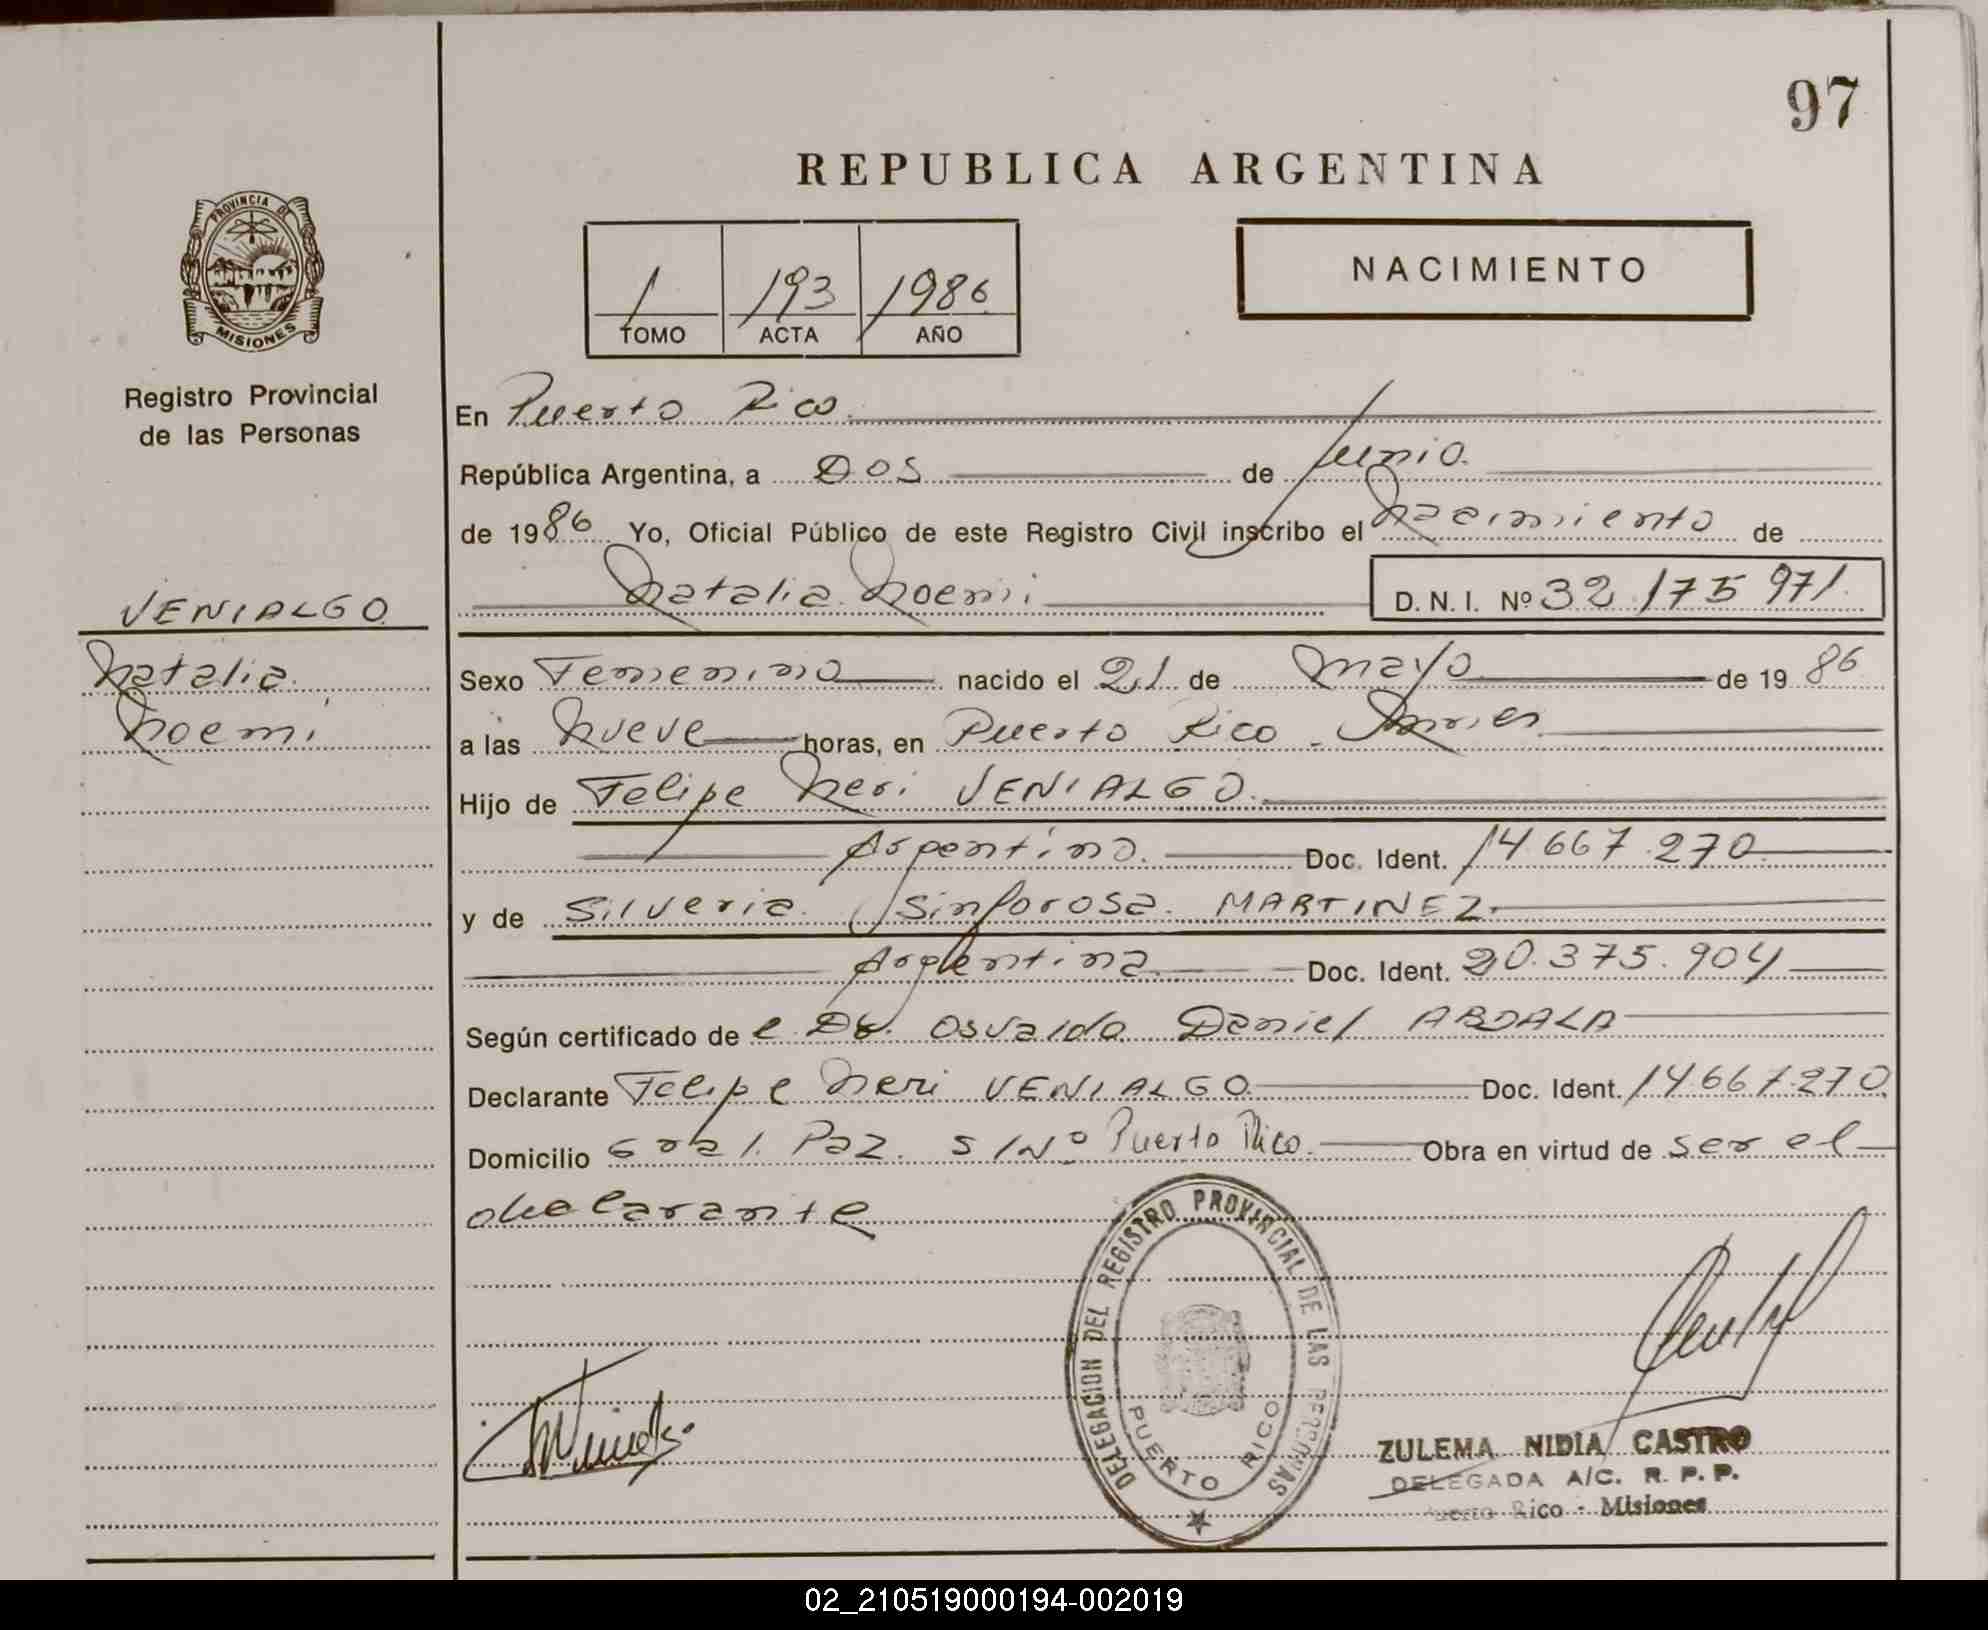 97
REPUBLICA ARGENTINA
PROVINCIA DE
MISIONES
Registro Provincial
de las Personas
1 193 1986
TOMO ACTA AÑO
NACIMIENTO
En Puerto Rico
República Argentina, a Dos de Junio
de 1986 Yo, Oficial Público de este Registro Civil inscribo el Nacimiento de
Natalia Noemi D. N. I. Nº 32 175 971
VENIALGO
Natalia
Noemi
Sexo Femenino nacido el 21 de Mayo de 19 86
a las Nueve horas, en Puerto Rico - Mnes
Hijo de Felipe Neri VENIALGO
Argentino. Doc. Ident. 14.667.270
y de Silveria Sinforosa MARTINEZ
Argentina Doc. Ident. 20.375.904
Según certificado de el Dr. Osvaldo Daniel ABDALA
Declarante Felipe Neri VENIALGO Doc. Ident. 14.667.270
Domicilio Gral. Paz. S/Nº Puerto Rico. Obra en virtud de ser el
declarante
DELEGACION DEL REGISTRO PROVINCIAL DE LAS PERSONAS
PUERTO RICO
ZULEMA NIDIA CASTRO
DELEGADA A/C. R. P. P.
Puerto Rico - Misiones
02_210519000194-002019